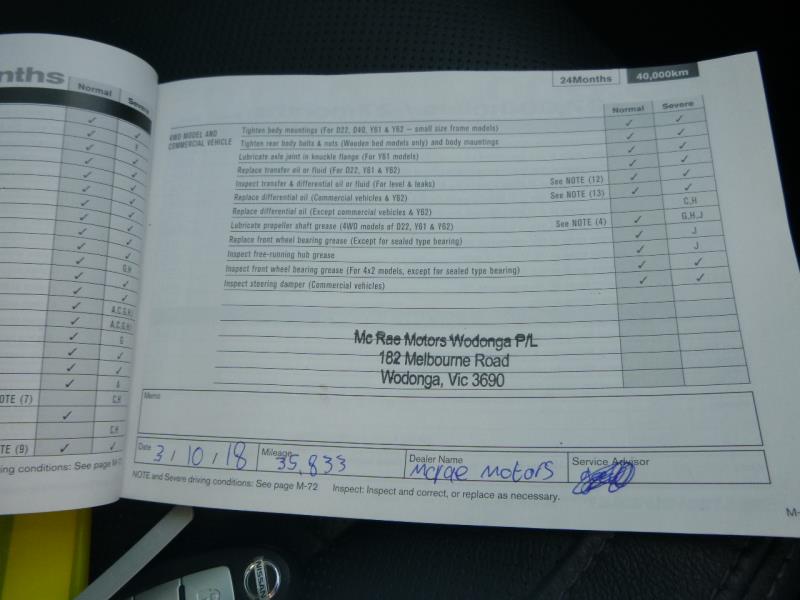 nths
Normal
Severe
G,H
A,C,G,H,I
A,C,G,H,I
G
A
OTE (7)
C,H
C,H
TE (9)
ing conditions: See page M-7
24Months
40,000km
Normal
Severe
4WD MODEL AND
COMMERCIAL VEHICLE
Tighten body mountings (For D22, D40, Y61 & Y62 – small size frame models)
Tighten rear body bolts & nuts (Wooden bed models only) and body mountings
Lubricate axle joint in knuckle flange (For Y61 models)
Replace transfer oil or fluid (For D22, Y61 & Y62)
Inspect transfer & differential oil or fluid (For level & leaks) See NOTE (12)
Replace differential oil (Commercial vehicles & Y62) See NOTE (13)
Replace differential oil (Except commercial vehicles & Y62) C,H
Lubricate propeller shaft grease (4WD models of D22, Y61 & Y62) See NOTE (4) G,H,J
Replace front wheel bearing grease (Except for sealed type bearing) J
Inspect free-running hub grease J
Inspect front wheel bearing grease (For 4x2 models, except for sealed type bearing)
Inspect steering damper (Commercial vehicles)
Mc Rae Motors Wodonga P/L
182 Melbourne Road
Wodonga, Vic 3690
Memo
Date 3/10/18 Mileage 35,833 Dealer Name Mcrae Motors Service Advisor
NOTE and Severe driving conditions: See page M-72 Inspect: Inspect and correct, or replace as necessary.
M-
NISSAN